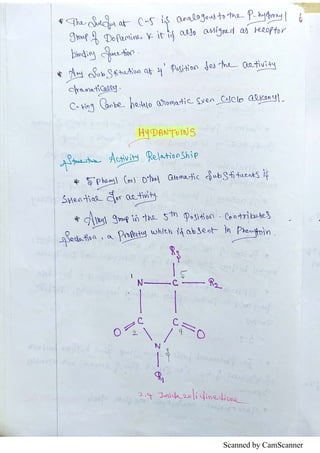 * The Sulfur at C-5 is analogous to the P-hydroxyl
group of Dopamine & it is also assigned as receptor
binding function.
* Any Substitution at 4' Position los the activity
dramatically.
C-ring Can be hetero aromatic even Cyclo alkenyl.
HYDANTOINS
Structure Activity Relationship
* 5 Phenyl (or) other aromatic Substituents is
essential for activity
* Alkyl group in the 5th Position Contributes
Sedation, a Property which is absent in Phenytoin.
R3
1 5
N C R2
C C
O 2 4 O
N 3
R1
2,4 Imidazolidinedione
Scanned by CamScanner